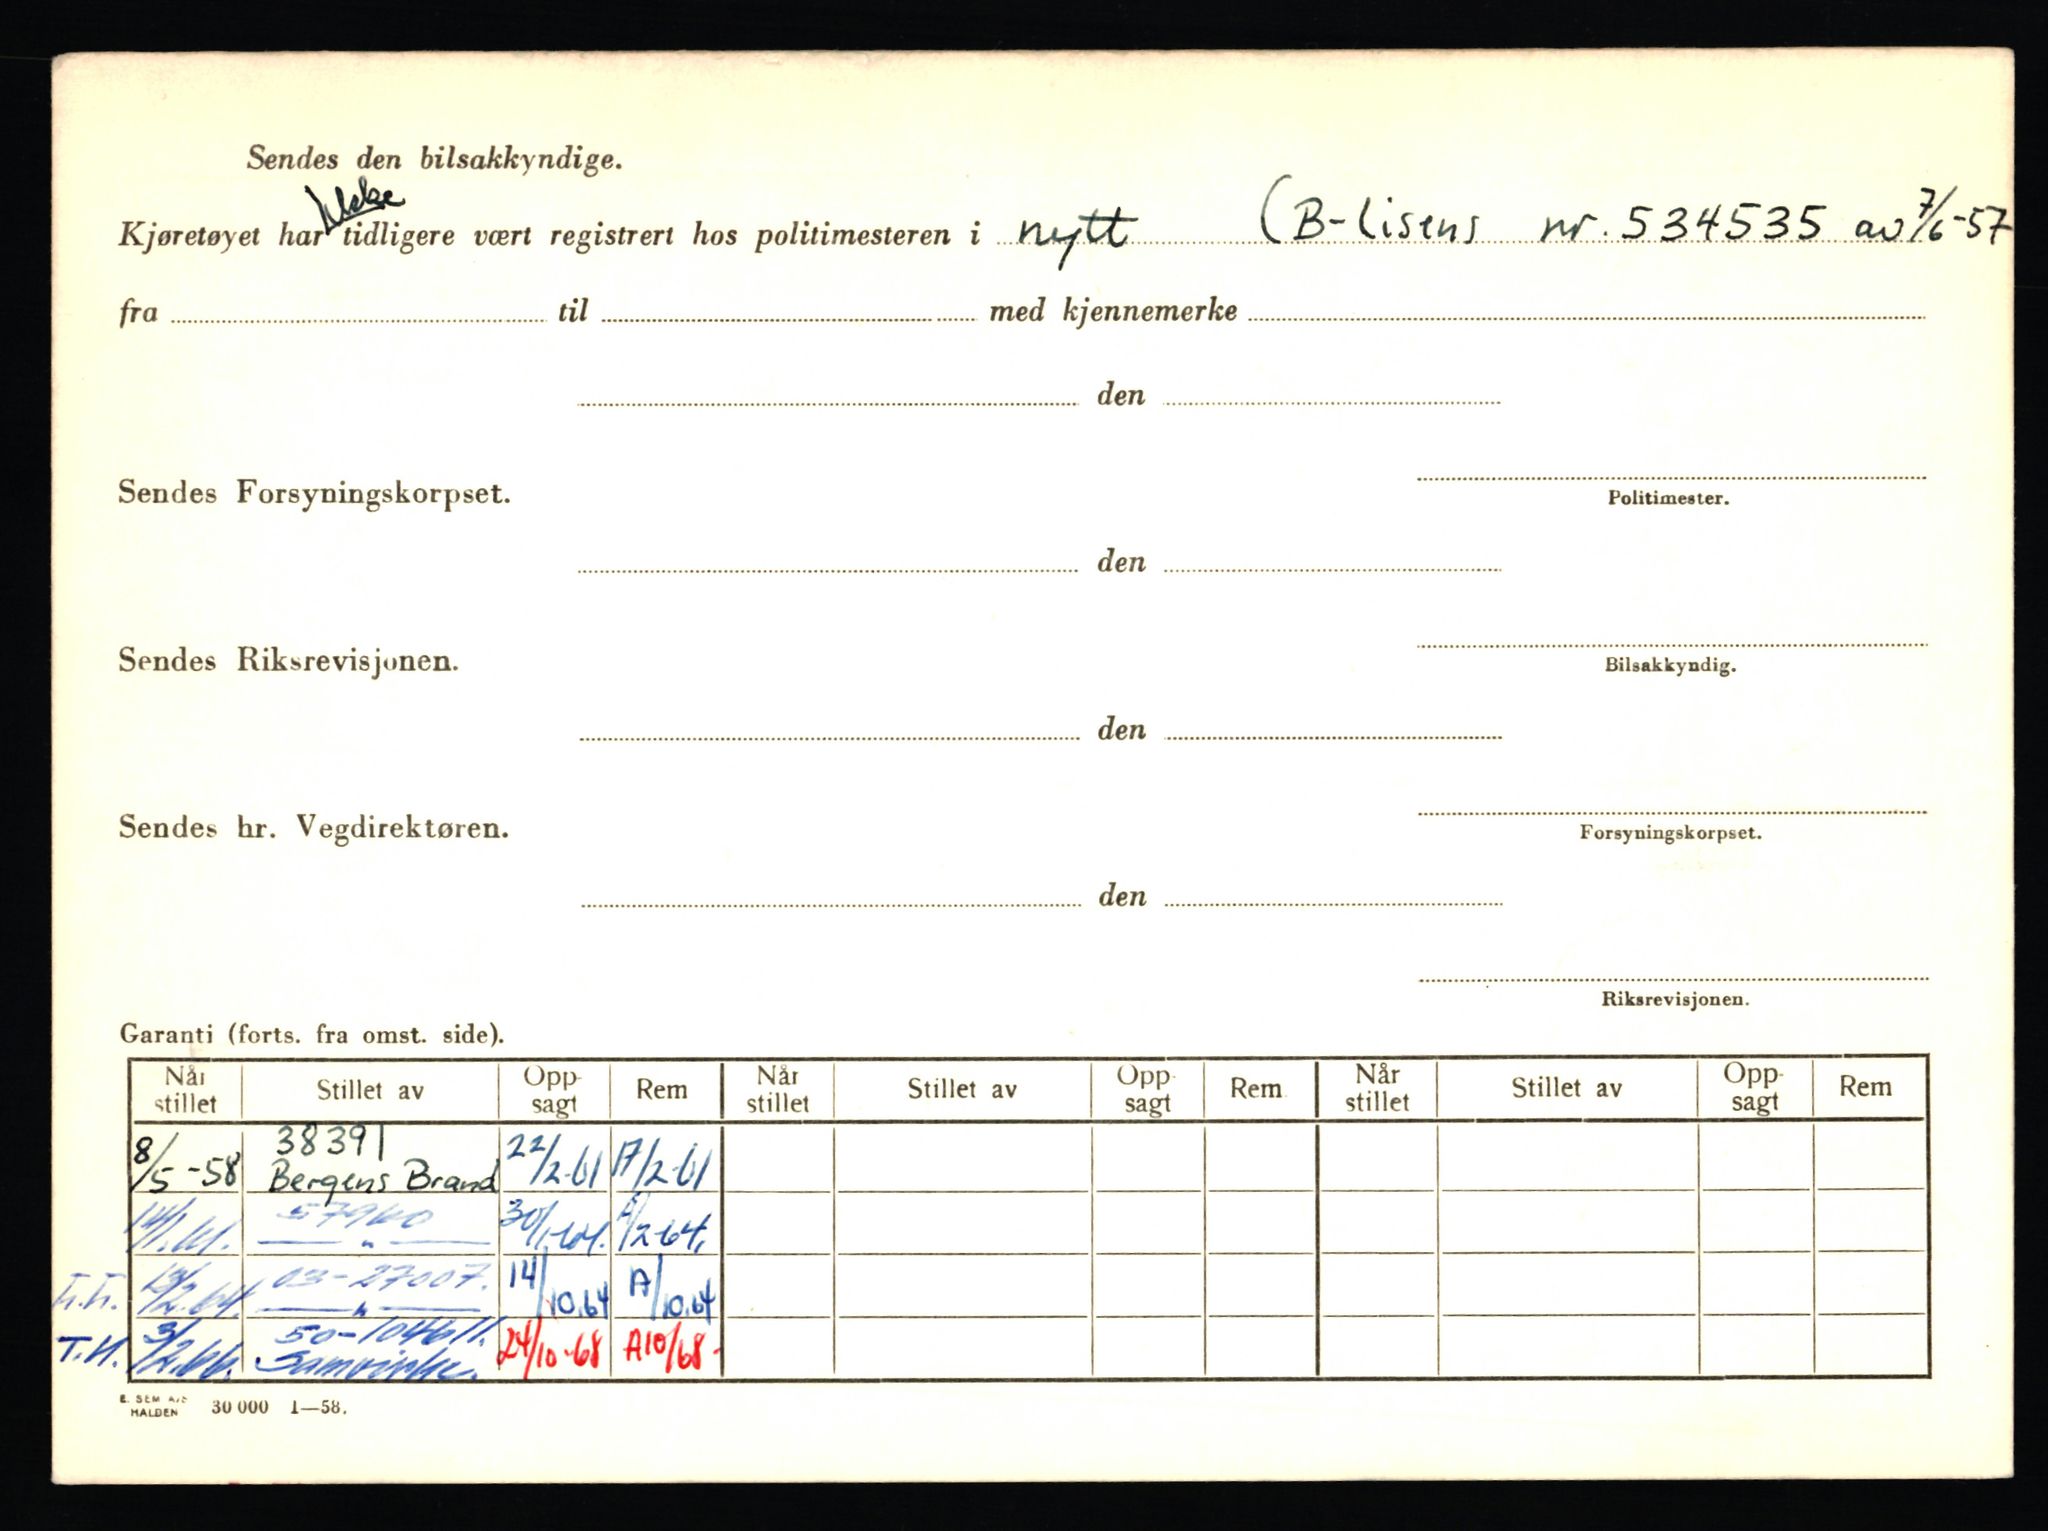 Sendes den bilsakkyndige.
Ikke
Kjøretøyet har tidligere vært registrert hos politimesteren i nytt (B-lisens nr. 534535 av 7/6-57
fra til med kjennemerke
den
Sendes Forsyningskorpset.
Politimester.
den
Sendes Riksrevisjonen.
Bilsakkyndig.
den
Sendes hr. Vegdirektøren.
Forsyningskorpset.
den
Riksrevisjonen.
Garanti (forts. fra omst. side).
Når stillet Stillet av Opp-sagt Rem Når stillet Stillet av Opp-sagt Rem Når stillet Stillet av Opp-sagt Rem
8/5-58 38391 Bergens Brand 22/2-61 A/2-61
14/1.61. 57960 — " — 30/1-64. A/2-64.
13/2.64. 03-27007. — " — 14/10.64 A/10.64
T.H. 3/2.66. 50-104611. Samvirke. 24/10-68 A10/68-
E. SEM A/S
HALDEN 30 000 1—58.